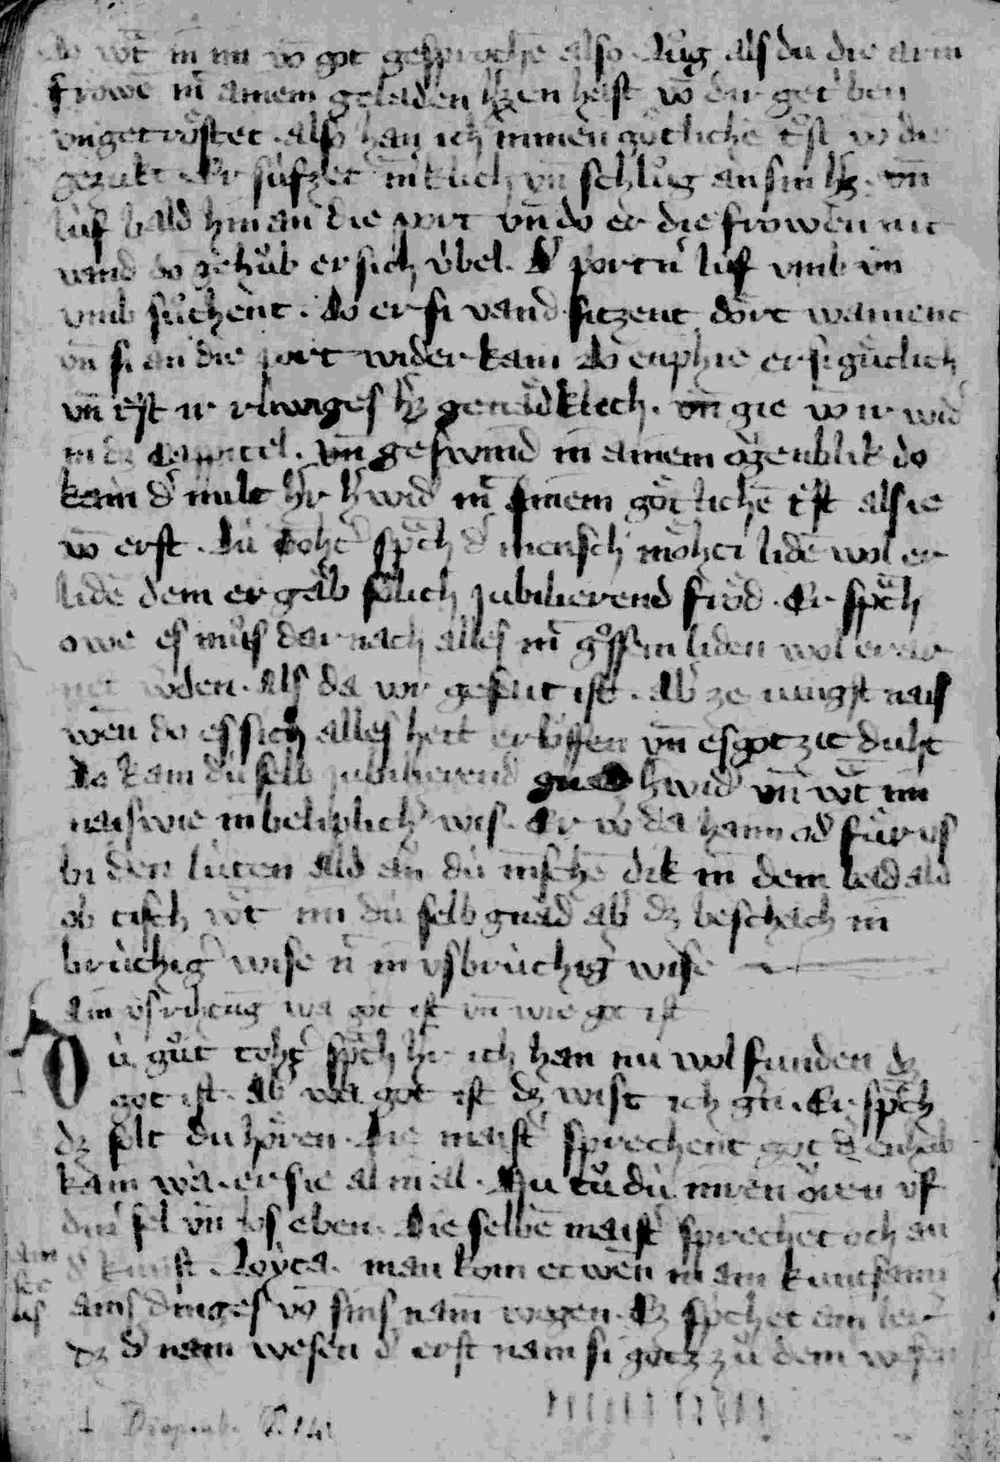 do wt̄ im in vō got gesprochē also . lůg als du die arm
frowē mī ainem geladen hꝫen hast vō dir get ben
vngetröstet . also han ich minen götlichē tr̊st vō dir
gezukt . Er súfzet inneklich vn̄ schlůg an sin hꝫ . vn̄
lúf bald hin an die port vn̄ do er die frowen nit
vand do gehůb er sich v́bel . d' portn' lúf vmb vn̄
vmb sůchent . do er si vand sitzent dort wainent
vn̄ si an die port wider kam do enphie er si gůtlich
vn̄ tr̊st ir rúwiges hꝫ genǎdklich . vn̄ gie vō ir wid'
in dc cappitel . vn̄ geswind in ainem ogenblik do
kam d' milt h'r h'wid' mī sinem götlichē tr̊st als ie
vō erst . Dú toht' sp̄ch d' mensch möhti lidē wol er
lidē dem er gäb sölich jubilierend fröd . Er sp̄ch
owe es můs dar nach alles mī gr̊ssem liden wol erar
net w'den . Als da vor geseit ist . Ab' ze iungst nais
wen do es sich alles hett erloffen vn̄ es got zit duht
do kam dú selb jubilierend gnad h'wid' vn̄ wt̄ im
naiswie in beliplich' wis . Er w' da haim od' für vs
bi den lúten ald an dú mēschē dik in dem bad ald
ob tisch wt̄ im dú selb gnad ab' dꝫ beschach in
in brúchig' wise n̄ in vsbrúchig' wise
Ain vsrihtūg wa got ist vn̄ wie got ist
Dú gůt toht' sp̄ch h'r ich han nu wol funden dꝫ
got ist . Ab' wa got ist dꝫ wist ich gn̄ . Er sp̄ch
dꝫ solt du hören . Die maist' sprechent got d' enhab
kain wa . er sie al in al . Nu tů dú inren oren vf
din' sel vn̄ los eben . Die selbē maist' sprechēt och an
d' kunst . Loyca . man kom etwen in ain kuntsami
ains dinges vō sins nam wegen . Es sp̄chet ain ler'
dꝫ d' nam wesen d' erst nam si gotz zů dem wesen